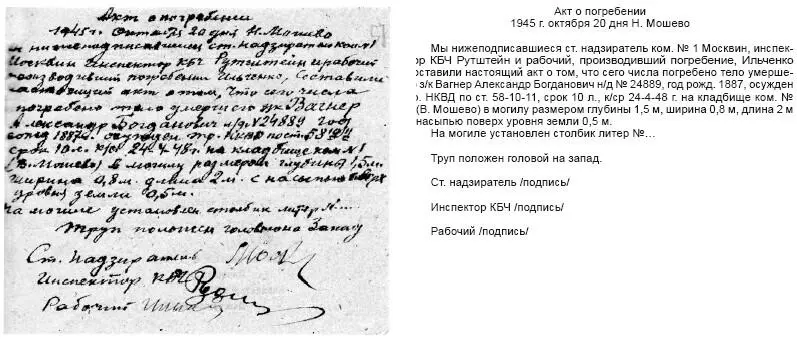 Акт о погребении
1945 г. Октября 20 дня Н. Мошево
нижеподписавшиеся ст. надзиратель ком №1
Москвин Инспектор КБЧ Рутштейн и рабочий
производивший погребение Ильченко, составили
настоящий акт о том, что сего числа
погребено тело умершего з/к Вагнер
Александр Богданович н/д №24889 год
рожд 1887 г. осужден Тр. НКВД по ст
срок 10 л. к/ср 24-4-48 г. на кладбище ком №1
(В. Мошево) в могилу размером глубины 1,5 м.
ширина 0,8 м. длина 2 м. с насыпью поверх
уровня земли 0,5 м.
На могиле установлен столбик литер №...
Труп положен головой на Запад
Ст. надзиратель
Инспектор КБЧ
Рабочий
Акт о погребении
1945 г. октября 20 дня Н. Мошево
Мы нижеподписавшиеся ст. надзиратель ком. № 1 Москвин, инспек-
ор КБЧ Рутштейн и рабочий, производивший погребение, Ильченко
оставили настоящий акт о том, что сего числа погребено тело умерше-
о з/к Вагнер Александр Богданович н/д № 24889, год рожд. 1887, осужден
. НКВД по ст. 58-10-11, срок 10 л., к/ср 24-4-48 г. на кладбище ком. №
(В. Мошево) в могилу размером глубины 1,5 м, ширина 0,8 м, длина 2 м
насыпью поверх уровня земли 0,5 м.
На могиле установлен столбик литер №…
Труп положен головой на запад.
Ст. надзиратель /подпись/
Инспектор КБЧ /подпись/
Рабочий /подпись/